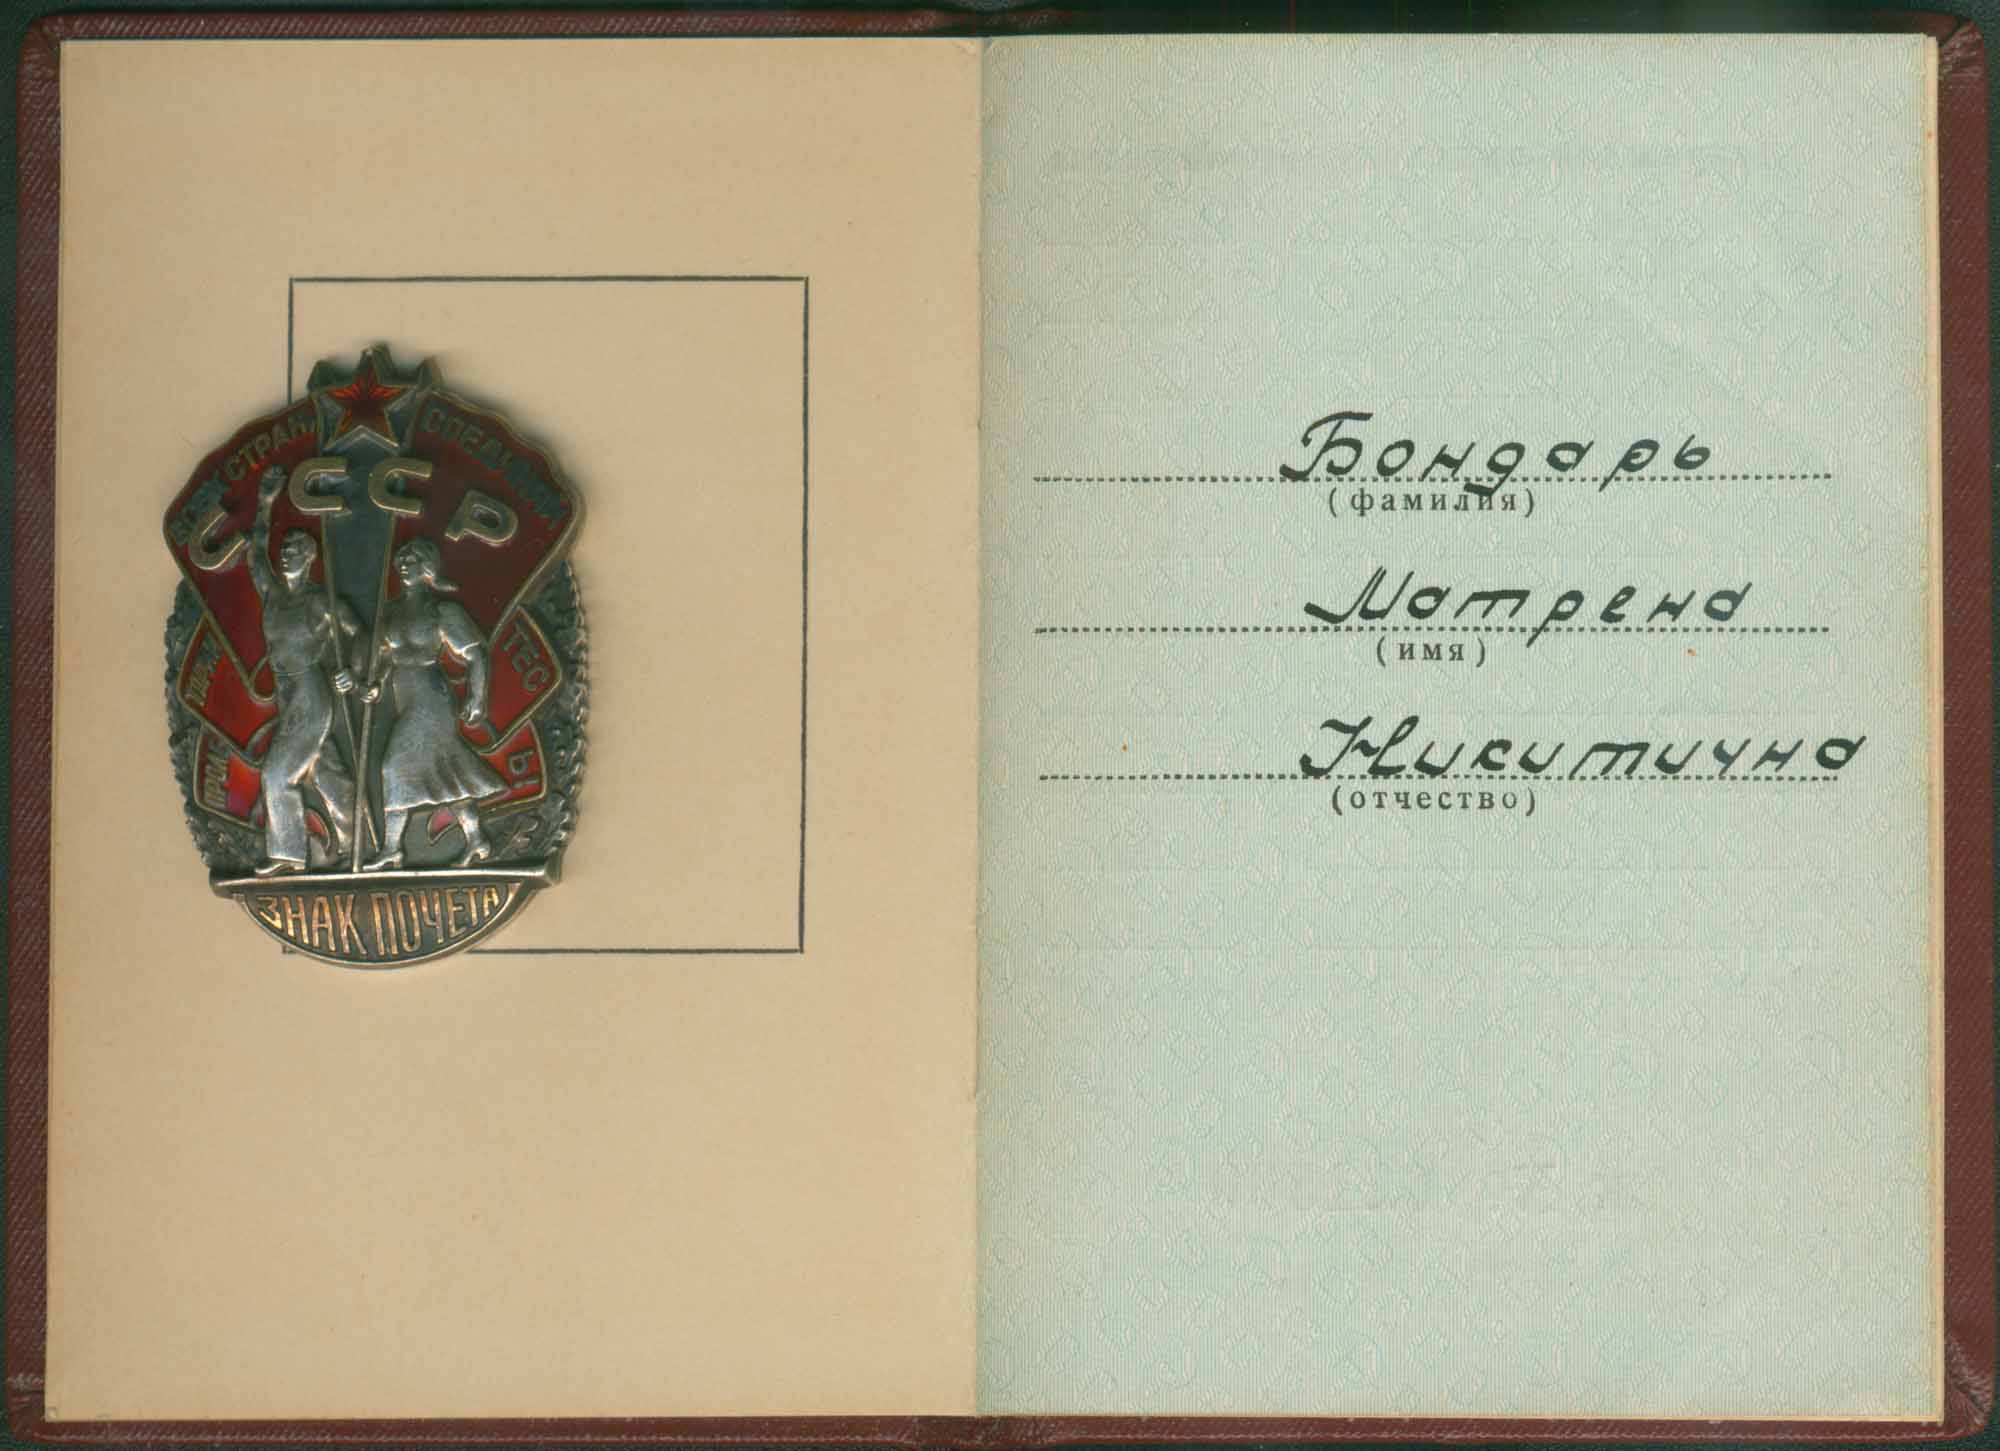 ВСЕХ СТРАН, СОЕДИНЯЙ
СССР
ПРОЛЕ
ТАРИ
ТЕС
Ь!
ЗНАК ПОЧЕТА
Бондарь
(фамилия)
Матрена
(имя)
Никитична
(отчество)